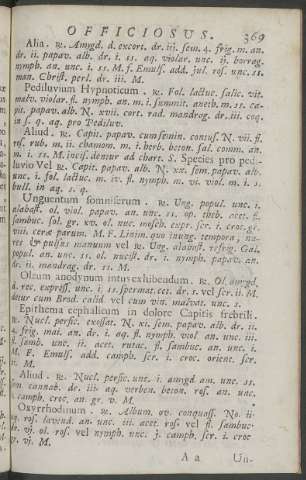 OFFICIOSUS. 369
Alia. ℞. Amygd. d. excort. dr. iij. sem. 4. frig. m. an.
dr. ii. papav. alb. dr. i. ss. aq. violar. unc. ij. borrag.
nymph. an. unc. i. ss. M. f. Emuls. add. jul. ros. unc. ss.
man. Christ. perl. dr. iii. M.
Pediluvium Hypnoticum. ℞. Fol. lactuc. salic. vit.
malv. violar. fl. nymph. an. m. i. summit. aneth. m. ss. ca-
pit. papav. alb. N. xvii. cort. rad. mandrag. dr. iii. coq.
in s. q. aq. pro Pediluv.
Aliud. ℞. Capit. papav. cum semin. contus. N. vii. fl.
ros. rub. m. ii. chamom. m. i. herb. beton. sal. comm. an.
m. i. ss. M. incis. dentur ad chart. S. Species pro pedi-
luvio Vel ℞. Capit. papav. alb. N. xx. sem. papav. alb.
unc. i. fol. lactuc. m. iv. fl. nymph. m. vi. viol. m. i. s.
bull. in aq. s. q.
Unguentum somniferum. ℞. Ung. popul. unc. i.
alabast. ol. viol. papav. an. unc. ss. op. theb. acet. fl.
sambuc. sol. gr. xv. ol. nuc. mosch. expr. scr. i. croc. gr.
viii. ceræ parum. M. F. Linim. quo inung. tempora, na-
res & pulsus manuum vel ℞. Ung. alabast. refrig. Gal.
popul. an. unc. ss. ol. nucist. dr. i. nymph. papav. an.
dr. ii. mandrag. dr. ss. M.
Oleum anodynum intus exhibendum. ℞. Ol. amygd.
d. rec. express. unc. i. ss. spermat. cet. dr. i. vel scr. ii. M.
detur cum Brod. calid vel cum vin. malvat. unc. s.
Epithema cephalicum in dolore Capitis febrili.
℞. Nucl. persic. excort. N. xi. sem. papav. alb. dr. ii.
4. frig. mai. an. dr. i. aq. fl. nymph. viol. an. unc. iii.
fl. samb. unc. ii. acet. rutac. fl. sambuc. an. unc. i.
M. F. Emuls. add. camph. scr. i. croc. orient. scr.
M.
Aliud. ℞. Nucl. persic. unc. i. amygd. am. unc. ss.
sem cannab. dr. iii. aq. verben. beton. ros. an. unc.
camph. croc. an. gr. v. M.
Oxyrrhodinum. ℞. Album. ov. conquass. No. ii.
aq. ros. lavend. an. unc. iii. acet. ros. vel fl. sambuc.
vj. ol. ros. vel nymph. unc. j. camph. scr. i. croc
vj. M.
A a Un-